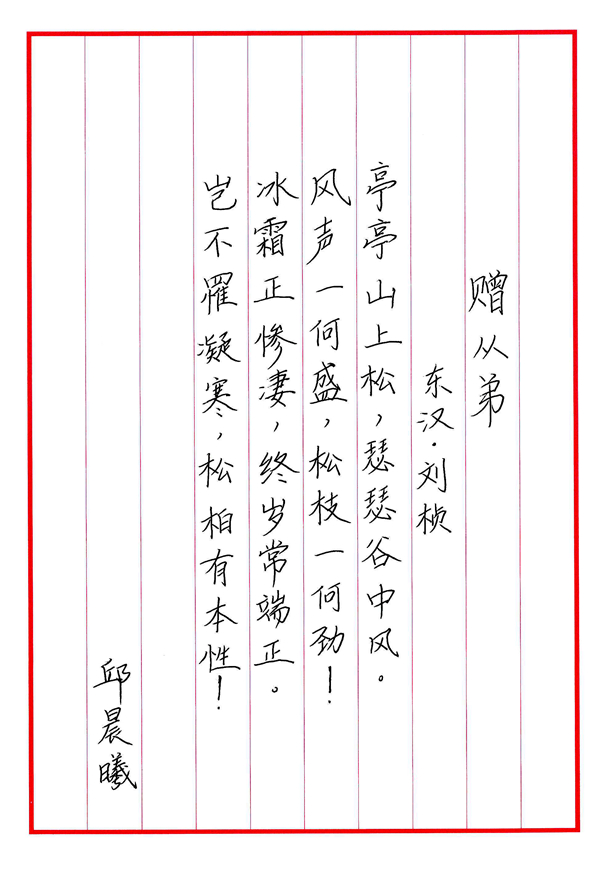 赠从弟
东汉·刘桢
亭亭山上松，瑟瑟谷中风。
风声一何盛，松枝一何劲！
冰霜正惨凄，终岁常端正。
岂不罹凝寒，松柏有本性！
邱晨曦